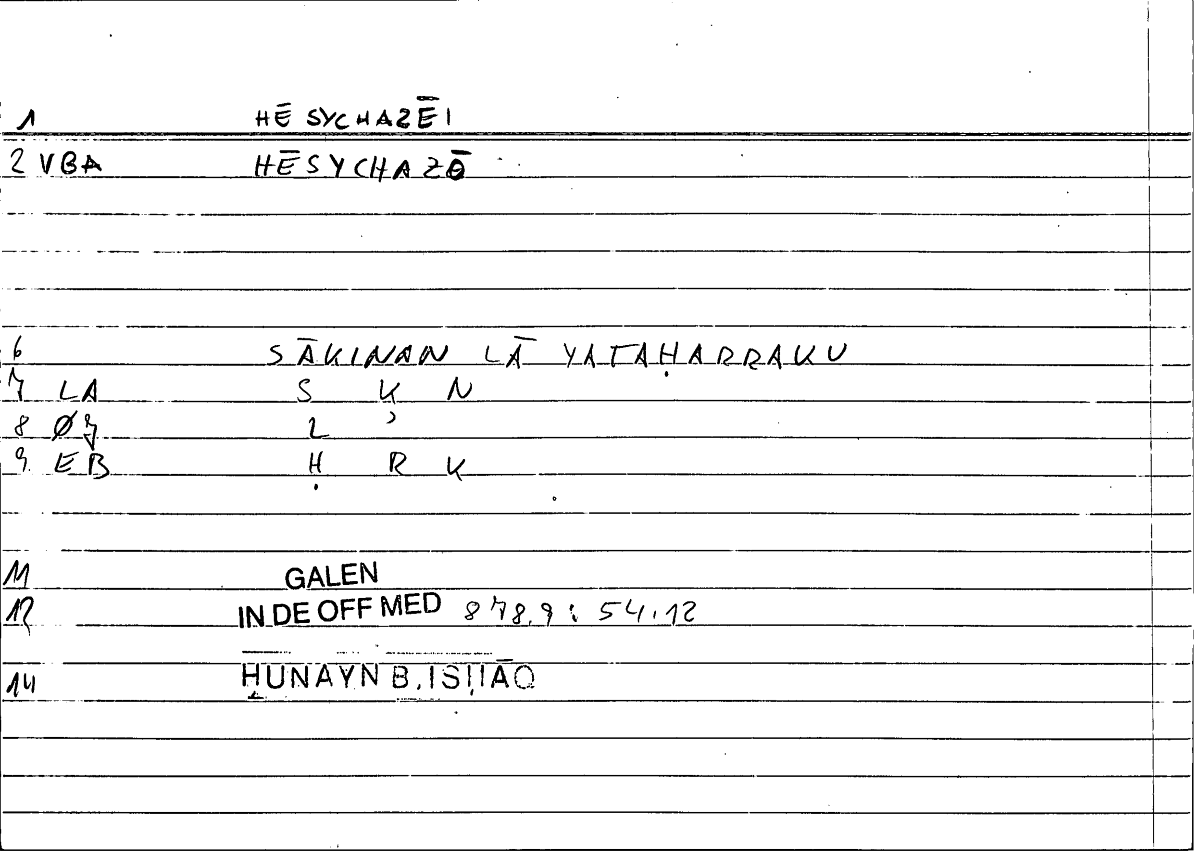 1 HĒSYCHAZĒI
2 VBA HĒSYCHAZŌ
6 SĀKINAN LĀ YATAḤARRAKU
7 LA S K N
8 Ø7 L ʾ
9 EB Ḥ R K
11 GALEN
12 IN DE OFF MED 878,9 : 54,12
14 ḤUNAYN B. ISḤĀQ